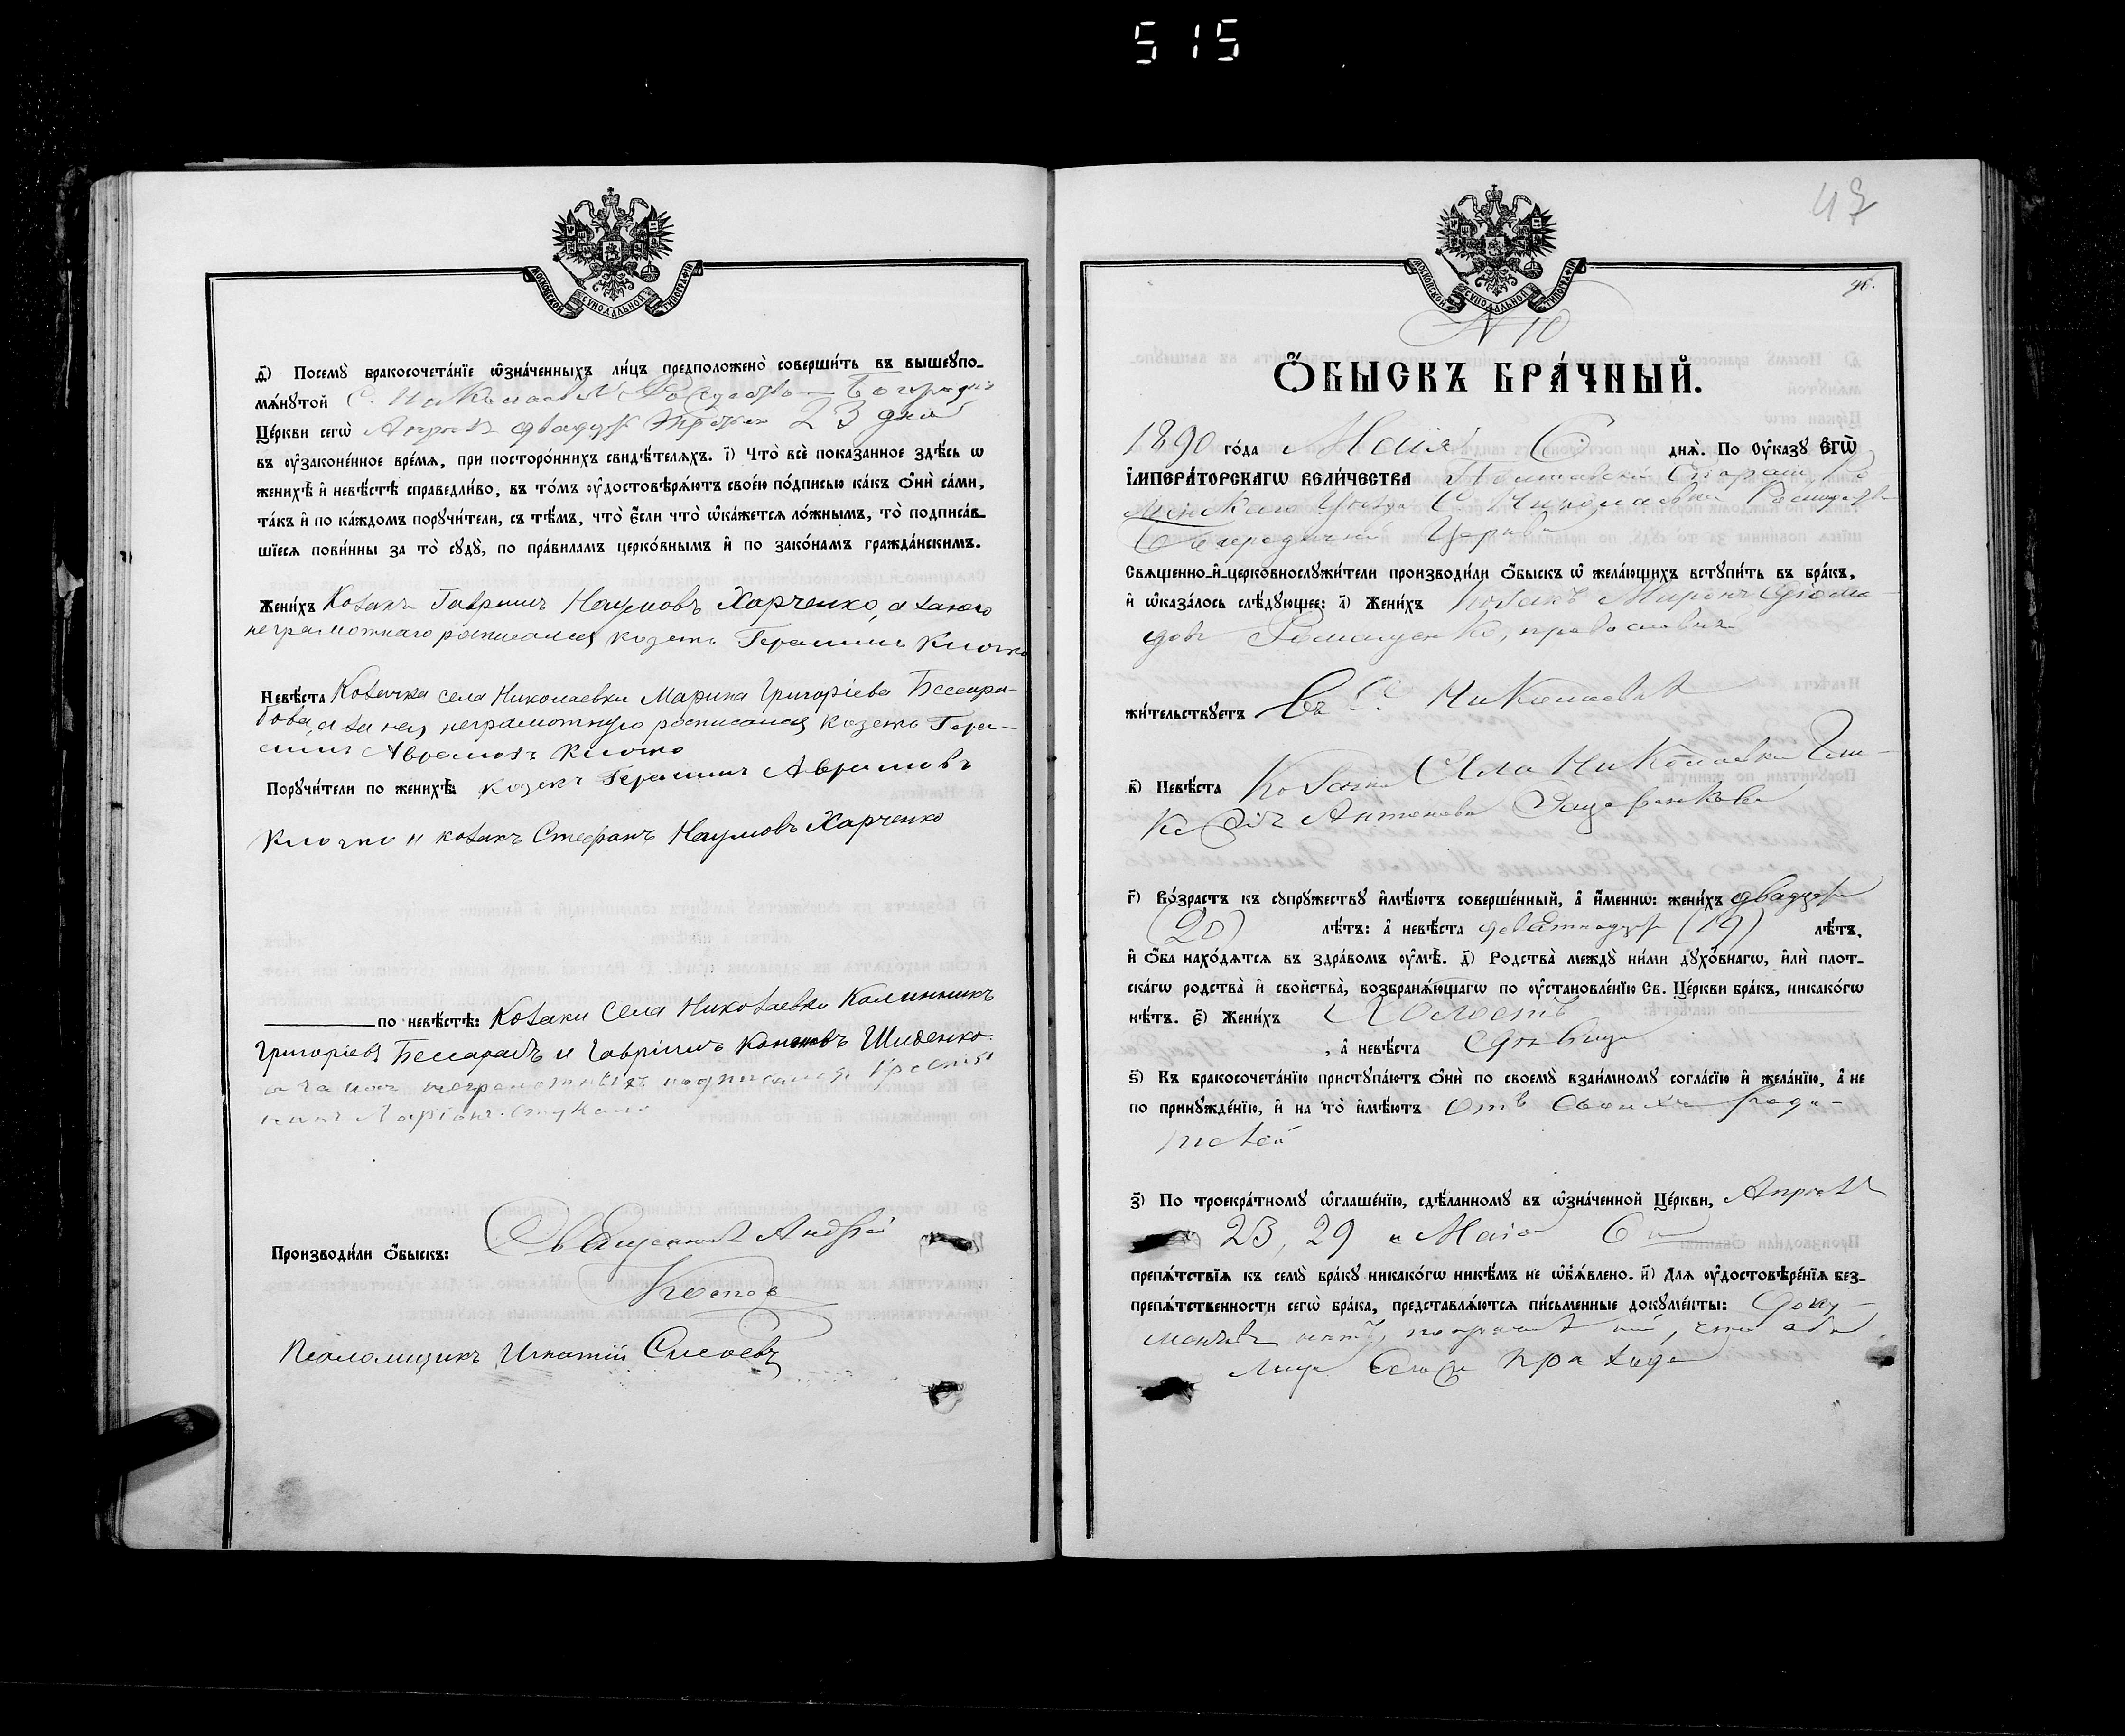 515
МОСКОВСКОЙ СѴНОДАЛЬНОЙ ТИПОГРАФІИ
д҃) Посемꙋ бракосочета́нїе ѡ҆зна́ченныхъ ли́цъ предположено̀ соверши́ть въ вышеꙋпо-
мѧ́нꙋтой С. Николаевки Рождество-Богородич
Це́ркви сегѡ̀ Апрѣля двадцать третьяго 23 дня
въ ᲂу҆законе́нное вре́мѧ, при посторо́ннихъ свидѣ́телѧхъ. і҃) Что̀ всѐ показанное здѣ́сь ѡ
женихѣ̀ и҆ невѣ́стѣ справедли́во, въ то́мъ ᲂу҆достовѣрѧ́ютъ свое́ю по́дписью ка́къ ѻ҆нѝ са́ми,
та́къ и҆ по ка́ждомъ порꙋчи́тели, съ тѣ́мъ, что̀ є҆́сли что̀ ѡ҆ка́жетсѧ ло́жнымъ, то̀ подписа́в-
шїесѧ пови́нны за то̀ сꙋдꙋ̀, по пра́виламъ церко́внымъ и҆ по зако́намъ гражда́нскимъ.
Жени́хъ Козакъ Гавріилъ Наумовъ Харченко, а за него
неграмотнаго росписался козакъ Герасимъ Клочко
Невѣ́ста Козачка села Николаевки Марина Григоріева Бессара-
бова, а за нея неграмотную росписался козакъ Гера-
симъ Аврамовъ Клочко
Порꙋчи́тели по женихѣ̀ козакъ Герасимъ Аврамовъ
Клочко и козакъ Стефанъ Наумовъ Харченко
по невѣ́стѣ: Козаки села Николаевки Калинникъ
Григоріевъ Бессарабъ и Гавріилъ Шиденко
а за нихъ неграмотныхъ подписался
Ларіонъ
Производи́ли ѻ҆́быскъ: Священникъ Андрей
Псаломщикъ Игнатій Сысоевъ
47
46.
МОСКОВСКОЙ СѴНОДАЛЬНОЙ ТИПОГРАФІИ
N 10
Ѻ҆́БЫСКЪ БРА́ЧНЫЙ.
1890 го́да Маія 6 днѧ̀. По Оу҆ка́зꙋ Є҆ГѠ̀
І҆МПЕРА́ТОРСКАГѠ ВЕЛИ́ЧЕСТВА Полтавской Епархіи
Уѣзда С. Николаевки Рождеств
Богородичной Церкви
Свѧще́нно-и҆-церковнослꙋжи́тели производи́ли ѻ҆́быскъ ѡ҆ жела́ющихъ встꙋпи́ть въ бра́къ,
и҆ ѡ҆каза́лось слѣ́дꙋющее: а҃) Жени́хъ козакъ Миронъ
Ромащенко, православный
жи́тельствꙋетъ Въ С. Николаевкѣ
в҃) Невѣ́ста Козачка Села Николаевки Гли-
керія Антонова
г҃) Во́зрастъ къ сꙋпрꙋ́жествꙋ и҆мѣ́ютъ соверше́нный, а҆ и҆́меннѡ: жени́хъ двадцать
(20) лѣ́тъ: а҆ невѣ́ста девятнадцать (19) лѣ́тъ,
и҆ ѻ҆́ба нахо́дѧтсѧ въ здра́вомъ ᲂу҆мѣ̀. д҃) Родства̀ междꙋ ни́ми дꙋхо́внагѡ, и҆лѝ плот-
ска́гѡ родства̀ и҆ сво́йства, возбранѧ́ющагѡ по ᲂу҆становле́нїю Св. Це́ркви бра́къ, никако́гѡ
нѣ́тъ. є҃) Жени́хъ Холостъ
, а҆ невѣ́ста дѣвица
ѕ҃) Къ бракосочета́нїю пристꙋпа́ютъ ѻ҆нѝ по своемꙋ̀ взаи́мномꙋ согла́сїю и҆ жела́нїю, а҆ не
по принꙋжде́нїю, и҆ на то̀ и҆мѣ́ютъ отъ своихъ роди-
телей
з҃) По троекра́тномꙋ ѡ҆глаше́нїю, сдѣ́ланномꙋ въ ѡ҆зна́ченной Це́ркви, Апрѣля
23, 29 и Маія 6
препѧ́тствїѧ къ семꙋ̀ бра́кꙋ никако́гѡ никѣ́мъ не ѡ҆б̾ѧ́влено. и҃) Для ᲂу҆достовѣре́нїѧ без-
препѧ́тственности сегѡ̀ бра́ка, представлѧ́ютсѧ пи́сьменные докꙋме́нты: Доку-
ментовъ нѣтъ, что оба
лица сего прихода